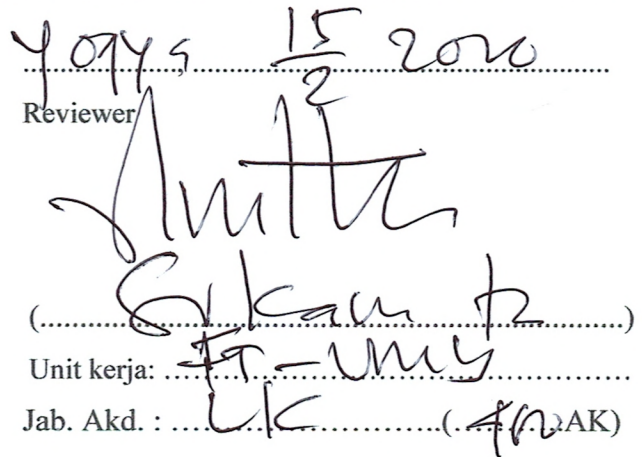 Yogya 15/2 2020
Reviewer
(....................)
Unit kerja: FT-UMY
Jab. Akd. : LK (400 AK)